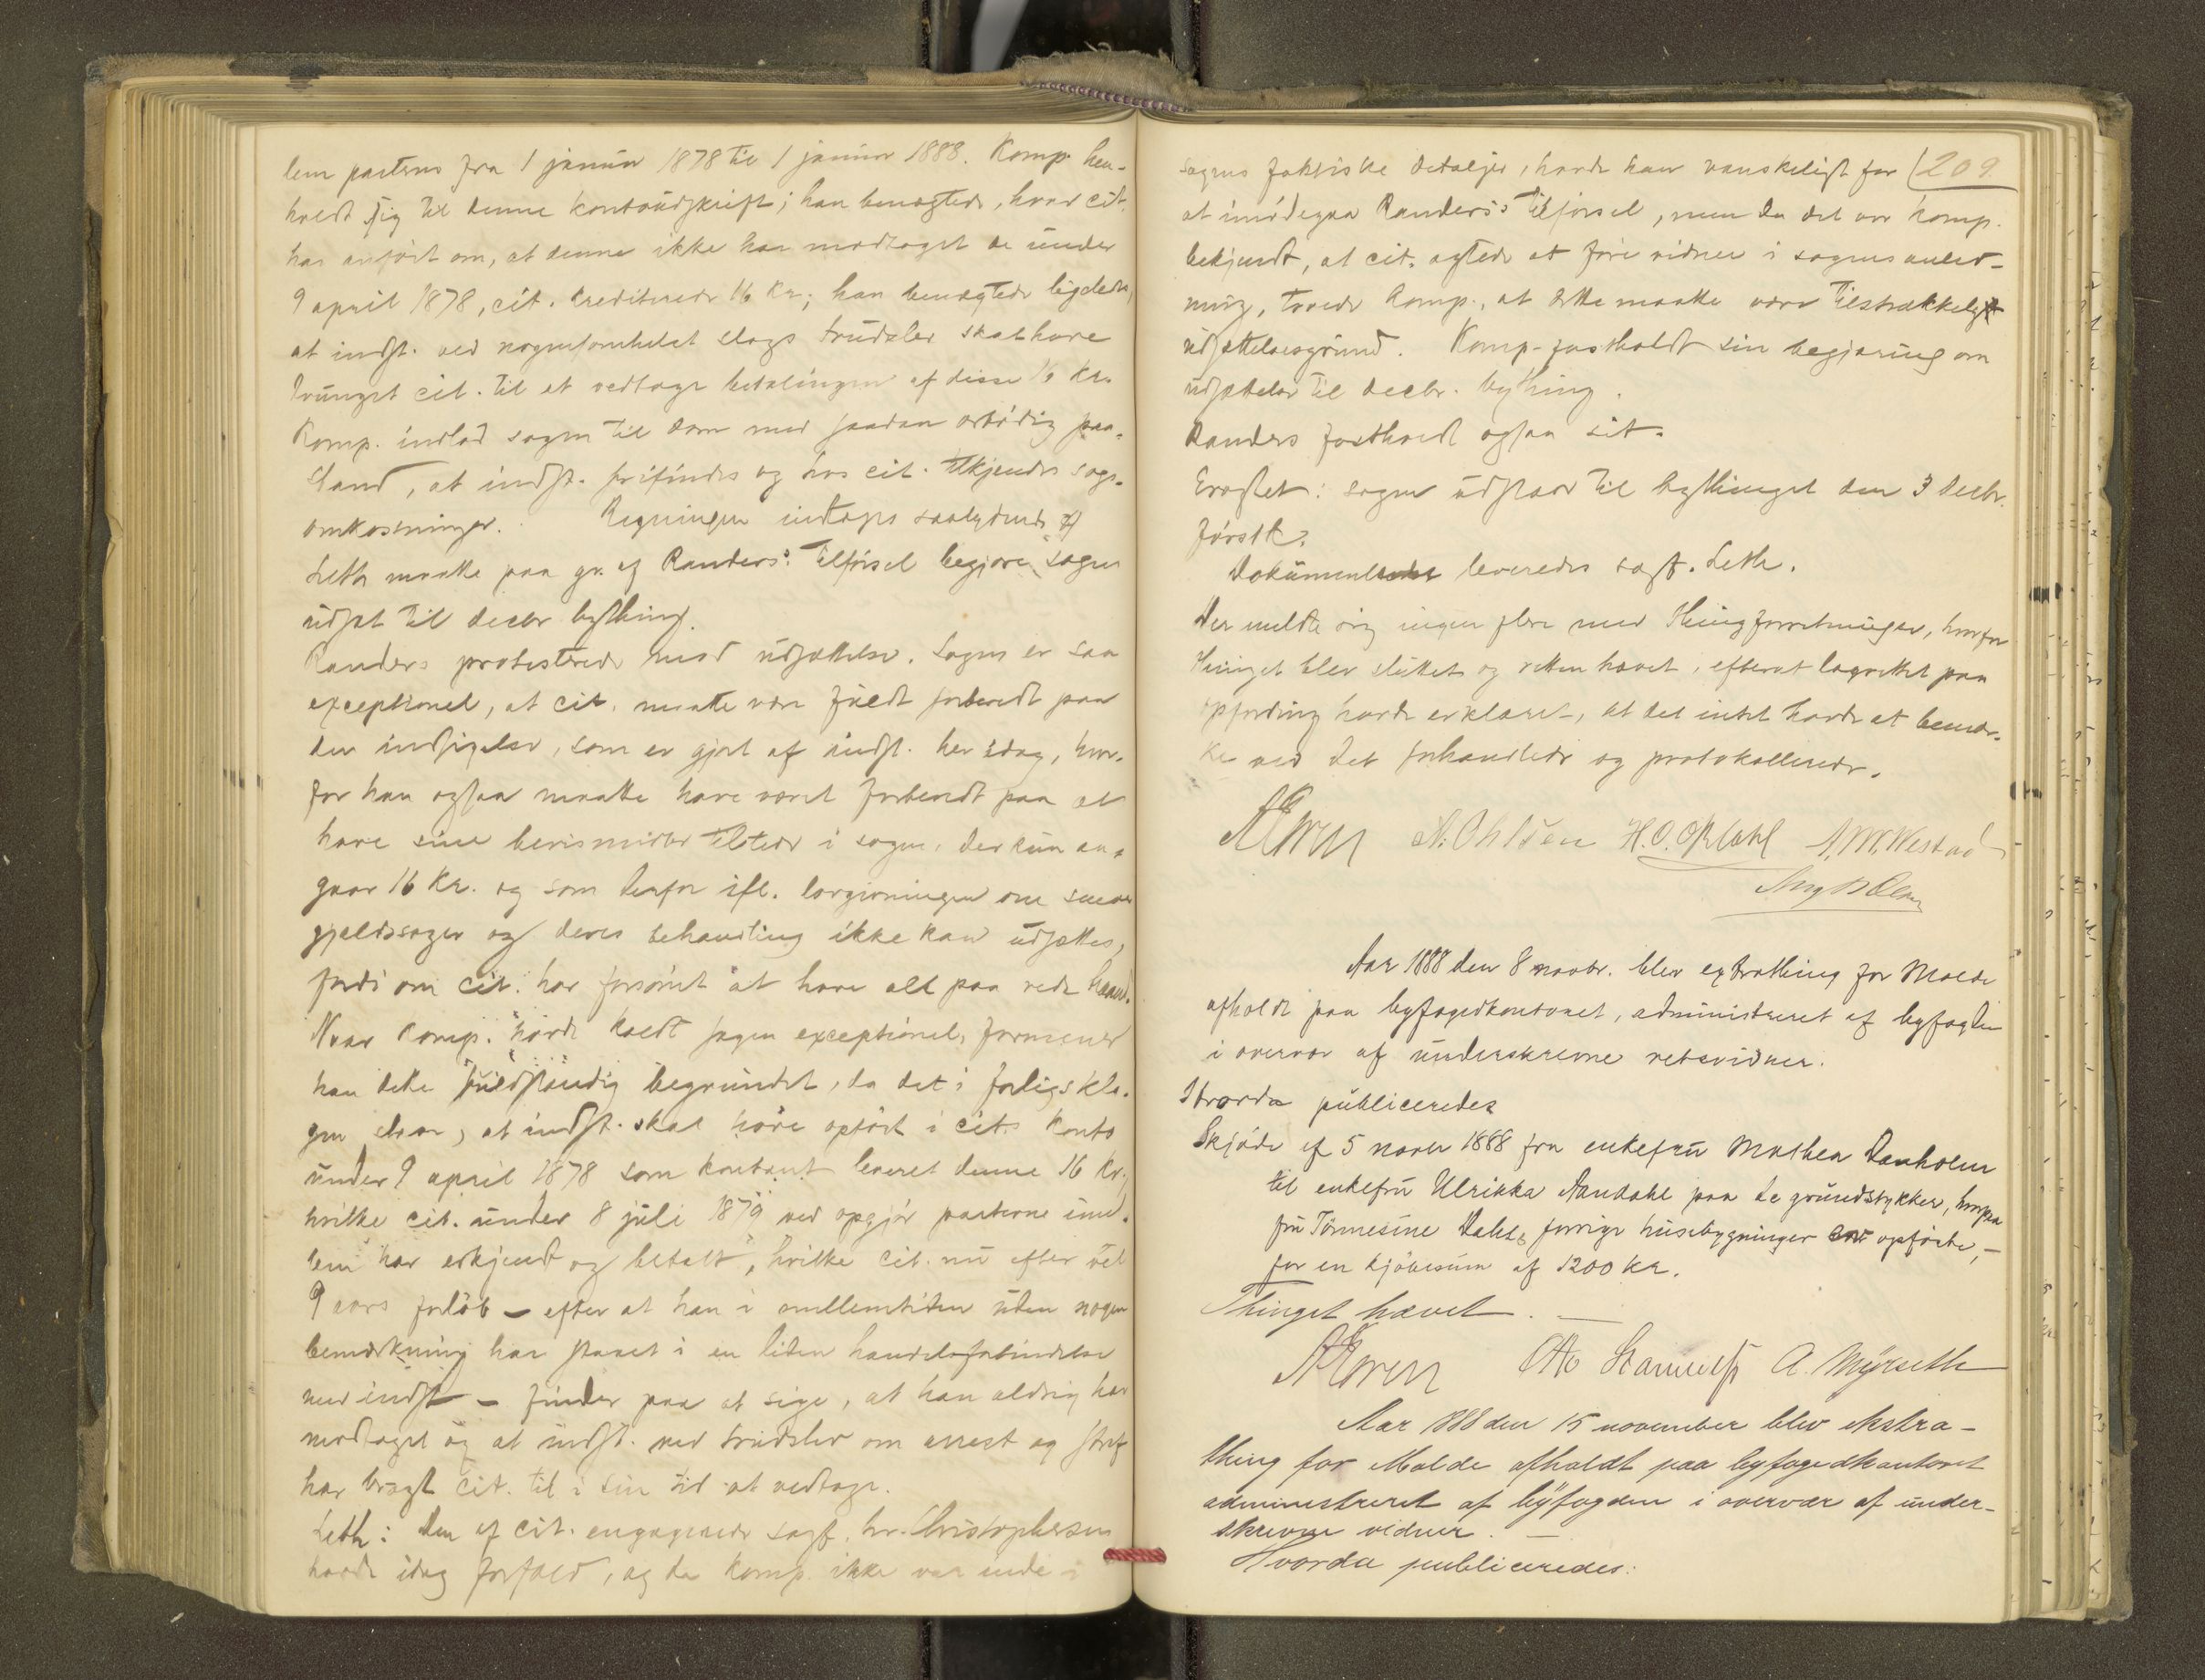 lem parterne fra 1 januar 1878 til 1 januar 1888. Komp. hen-
holdt sig til denne kontoudskrift; han benægtede, hvad cit.
har anført om, at denne ikke har modtaget de under
9 april 1878, cit. krediterede 16 Kr; han benægtede ligeledes,
at indst. ved nogensomhelst slags trudsler skal have
tvunget cit. til at vedtage betalingen af disse 16 Kr.
Komp. indlod sagen til dom med saadan ærbødig paa-
stand, at indst. frifindes og hos cit. tilkjendes sags-
omkostninger. Regningen indtages saalydende
Leth maatte paa gr. af Randers's tilførsel begjære sagen
udsat til decbr bything.
Randers protesterede mod udsættelse. Sagen er saa
exceptionel, at cit. maatte være fuldt forberedt paa
den indsigelse, som er gjort af indst. her idag, hvor-
for han ogsaa maatte have været forberedt paa at
have sine bevismidler tilstede i sagen, der kun an-
gaar 16 Kr. og som derfor ifl. lovgivningen om smaa
gjældssager og deres behandling ikke kan udsættes,
fordi om cit. har forsømt at have alt paa rede haand.
Naar Komp. havde kaldt sagen exceptionel, formener
han dette fuldstændig begrundet, da det i forligskla-
gen staar, at indst. skal have opført i cits konto
under 9 april 1878 som kontant leveret denne 16 Kr.,
hvilke cit. under 8 juli 1879 "ved opgjør parterne imel-
lem har erkjendt og betalt", hvilke cit. nu efter vel
9 aars forløb - efter at han i mellemtiden uden nogen
bemærkning har staaet i en liden handelsforbindelse
med indst - finder paa at sige, at han aldrig har
modtaget og at indst. ved trudsler om arrest og straf
har bragt cit. til i sin tid at vedtage.
Leth: Den af cit. engagerede sagf. hr. Christophersen
havde idag forfald, og da komp. ikke var inde i
209
sagens faktiske detaljer, havde han vanskeligt for
at imødegaa Randers's tilførsel, men da det var komp.
bekjendt, at cit. agtede at føre vidner i sagens anled-
ning, troede komp., at dette maatte være tilstrækkelig
udsættelsesgrund. Komp. fastholdt sin begjæring om
udsættelse til decbr. bything.
Randers fastholdt ogsaa sit.
Eragtet: sagen udstaar til bythinget den 3 decbr.
førstk.
Dokumenterne leveredes sagf. Leth.
Der meldte sig ingen flere med thingforretninger, hvorfor
thinget blev sluttet og retten hævet, efterat lagrettet paa
opfordring havde erklæret, at det intet havde at bemær-
ke ved det forhandlede og protokollerede.
A. Ohlsen H.O. Opdahl A.M. Westad
Aar 1888 den 8 novbr. blev extrathing for Molde
afholdt paa byfogedkontoret, administreret af byfogden
i overvær af underskrevne retsvidner.
Hvorda publiceredes
Skjøde af 5 novbr 1888 fra enkefru Mathea Danholm
til enkefru Ulrikka Aandahl paa de grundstykker, hvorpaa
fru Tønnesine Dahls forrige husebygninger var opførte,-
for en kjøbesum af 1200 Kr.
Thinget hævet. -
Otto A. Myrseth
Aar 1888 den 15 november blev ekstra-
thing for Molde afholdt paa byfogedkontoret
administreret af byfogden i overvær af under-
skrevne vidner. -
Hvorda publiceredes: